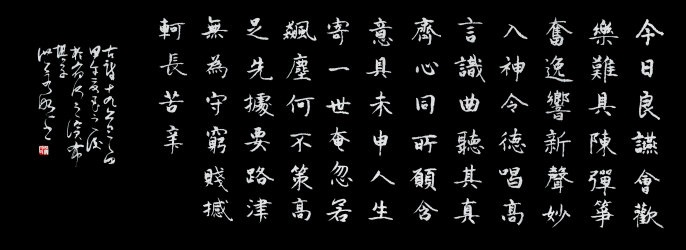 今日良讌會歡
樂難具陳彈箏
奮逸響新聲妙
入神令德唱高
言識曲聽其真
齊心同所願含
意具未申人生
寄一世奄忽若
飆塵何不策高
足先據要路津
無為守窮賤撼
軻長苦辛
古詩十九首之四
甲午夏